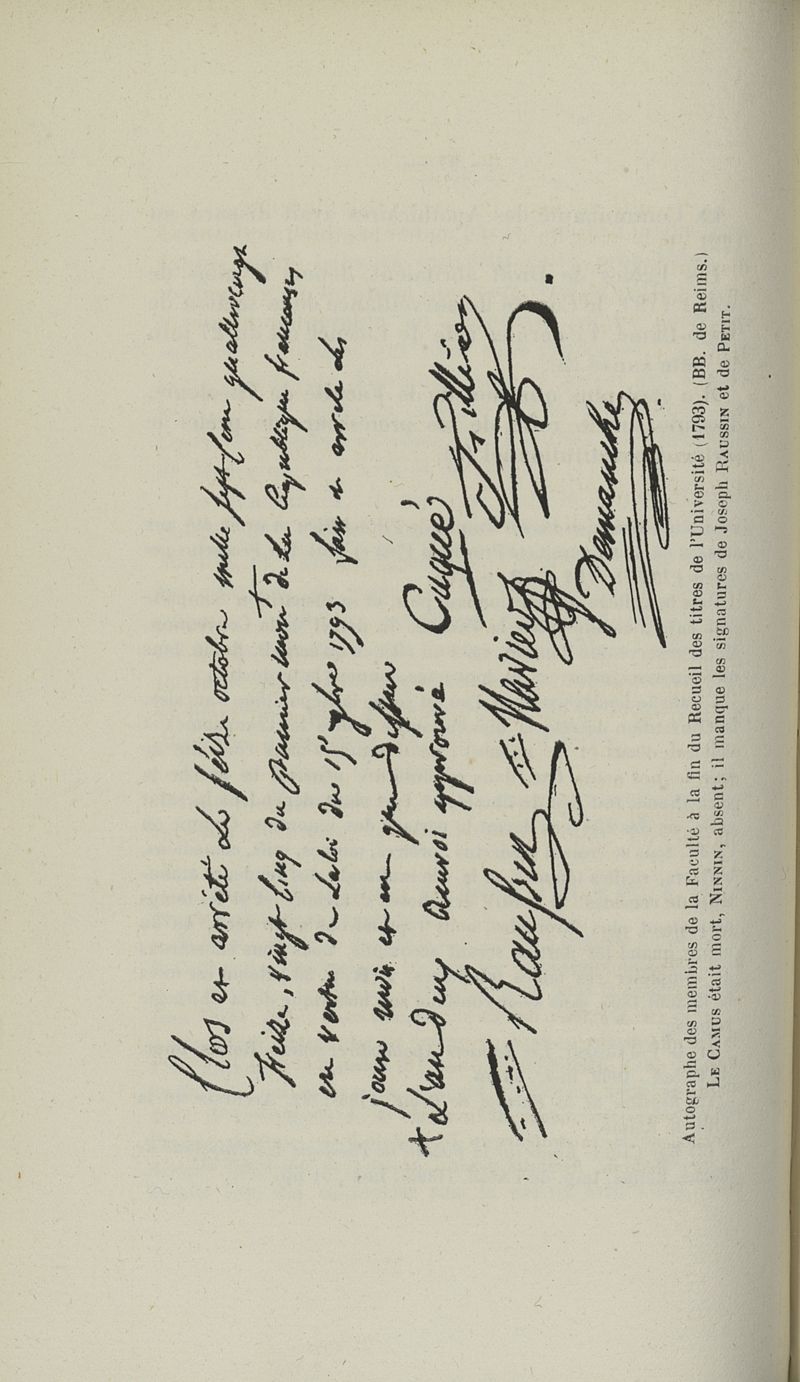 Clos et arrêté le seize octobre mille sept cent quatrevingt
treize, vingt cinq du premier mois + de la Republique francaise
en vertu de la loi du 15 7bre 1793 fait et arreté les
jour mois et an que dessus
+ L'an deux renvoi approuvé Caqué
Raussin Navier Fillion
Demanche
Autographe des membres de la Faculté à la fin du Recueil des titres de l'Université (1793). (BB. de Reims.)
Le Camus était mort, Ninnin, absent; il manque les signatures de Joseph Raussin et de Petit.